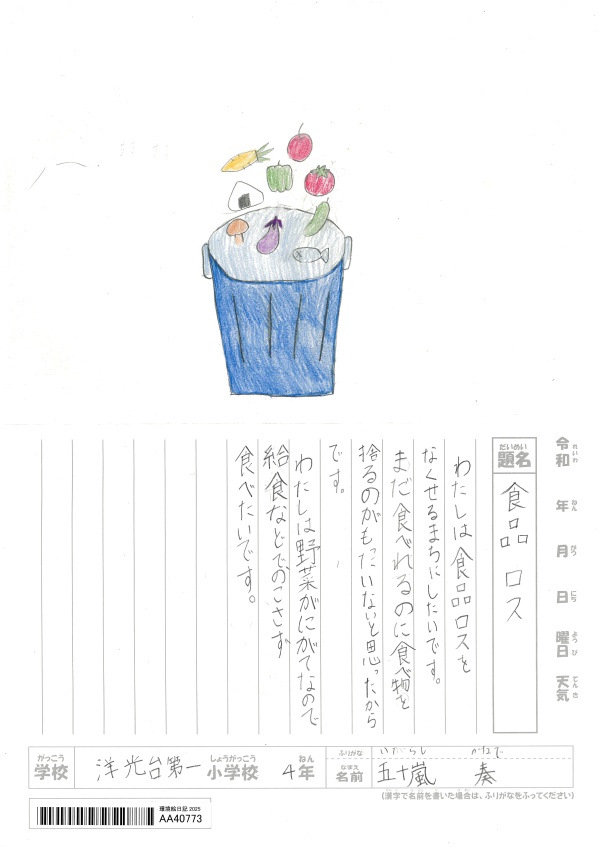 令和 年 月 日 曜日 天気
れいわ ねん がつ にち ようび てんき
だいめい
題名
食品ロス
わたしは食品ロスを
なくせるまちにしたいです。
まだ食べれるのに食べ物を
捨るのがもたいないと思ったから
です。
わたしは野菜がにがてなので
給食などでのこさず
食べたいです。
がっこう しょうがっこう ねん
学校 洋光台第一 小学校 4年
ふりがな いがらし かなで
なまえ
名前 五十嵐 奏
(漢字で名前を書いた場合は、ふりがなをふってください)
環境絵日記 2025
AA40773